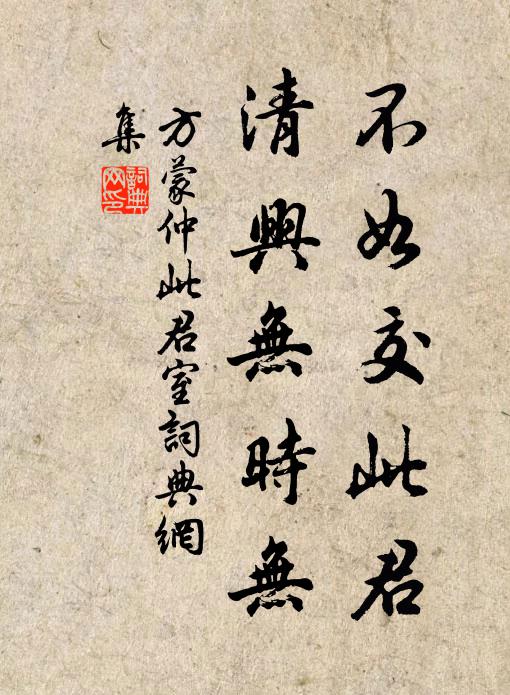 不如交此君
清興無時無
方蒙仲此君室詞典網
集
詞典網印